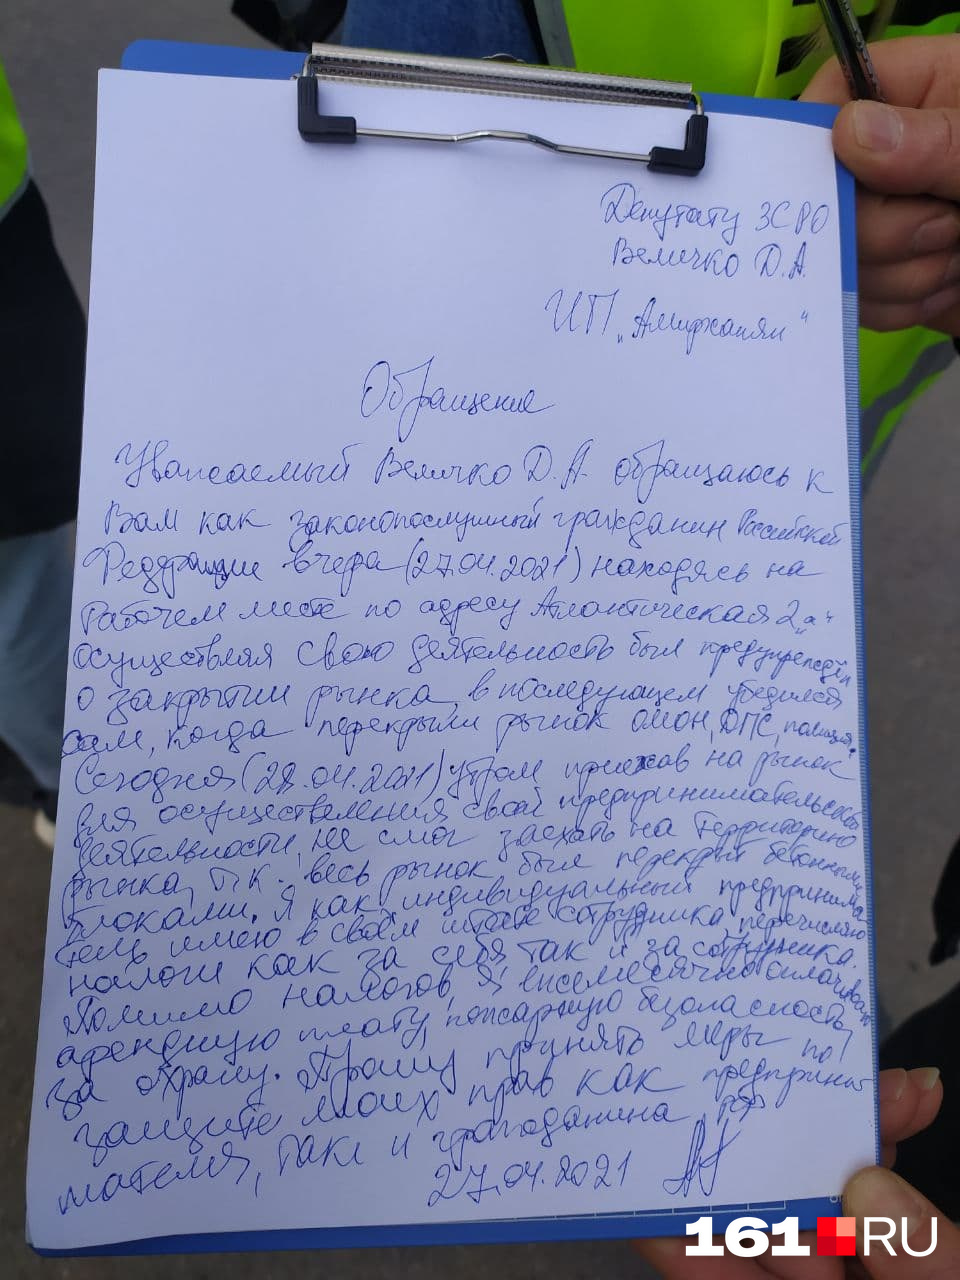 Депутату ЗСРО
Величко Д.А.
ИП „Амирханян"
Обращение
Уважаемый Величко Д.А. обращаюсь к
Вам как законопослушный гражданин Российской
Федерации вчера (27.04.2021) находясь на
Рабочем месте по адресу Атлантическая 2„а"
осуществляя свою деятельность был предупрежден
о закрытии рынка, в последующем убедился
сам, когда перекрыли рынок омон, ДПС, полиция.
Сегодня (28.04.2021) утром приехав на рынок
для осуществления свой предпринимательской
деятельности, не смог заехать на территорию
рынка, т.к. весь рынок был перекрыт бетонными
блоками. Я как индивидуальный предпринима
тель имею в своём штате сотрудника перечисляю
налоги как за себя так и за сотрудника.
Помимо налогов, я ежемесячно оплачиваю
арендную плату, пожарную безопасность,
за охрану. Прошу принять меры по
защите моих прав как предприни
мателя, так и гражданина РФ
27.04.2021
161.RU